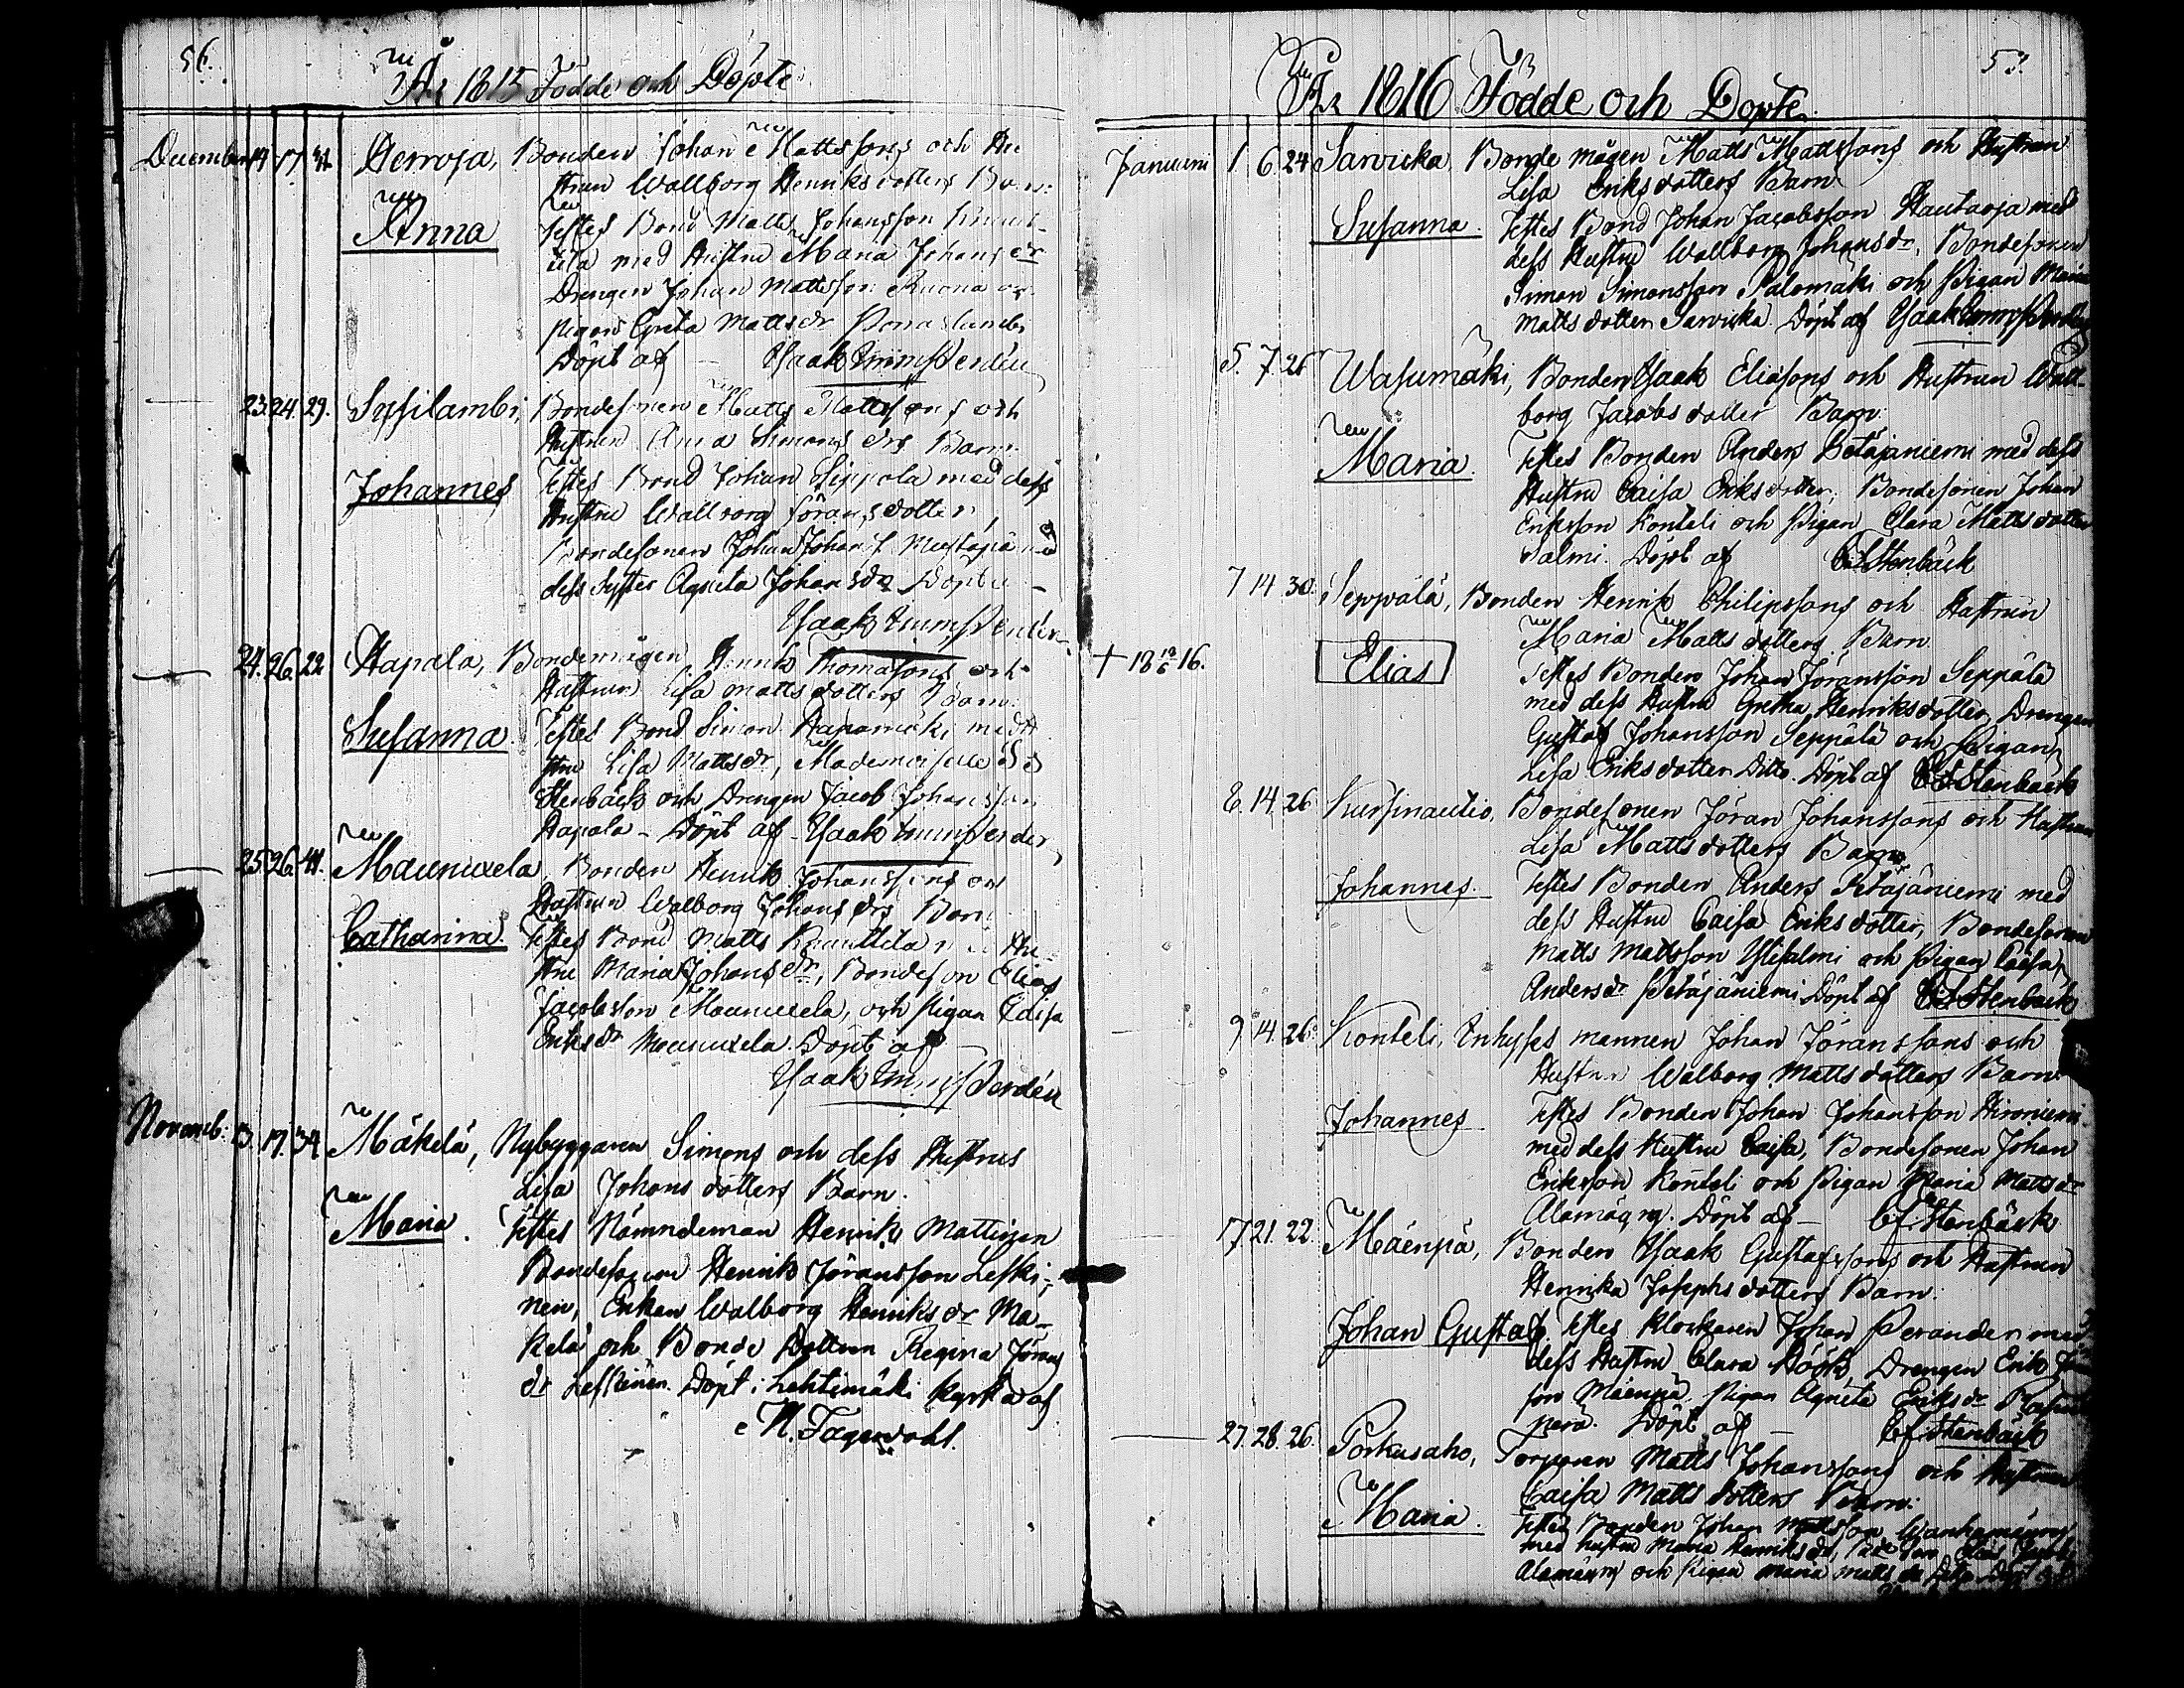 56.
År 1815 Födde och Döpte
December 14 17 34 Herroja, Bonden Johan Mattssons och Hu
strun Wallborg Henriksdotters Barn:
Anna
Testes Bond Matts Johansson
med Hustru Maria Johans dr
Drengen Johan Mattsson Ruona
Pigan Greta Mattsdr
Döpt af
23. 24. 29. Sysilambi, Bondesonen Matts Mattssons och
Hustrun Anna Simons drs Barn
Johannes Testes Bond Johan Seppola med dess
Hustru Wallborg Joransdotter,
Bondesonen Johan Johans
dess Syster Agneta Johansdr Döpt
24. 26. 22 Hapala, Bondemågen Henrik Thomasons och
Hustrun Lisa Mattsdotters Barn
Susanna. Testes Bond Simon med Hu
stru Lisa Mattsdr, Mademoiselle
Stenbäck och Drengen Jacob Johansson
Hapala - Döpt af -
25. 26. 41. Maunuxela, Bonden Henrik Johanssons och
Hustrun Walborg Johans drs Barn
Catharina. Testes Bond Matts Knuuttila Hu-
stru Maria Johans dr, Bondeson Elias
Jacobsson Maunuxela, och Pigan
Eriks dr Maunuxela. Döpt af
Novemb: 13. 17. 34. Mäkelä, Nybyggaren Simons och dess Hustrus
Lisa Johans dotters Barn.
Maria. Testes Nämndeman Henrik Mattinen
Bondesonen Henrik Joransson Leski-
nen, Enkan Walborg Henriks dr Mä-
kelä och Bonde Dottren Regina Jorans
dr Leskinen. Döpt i Lehtimäki Kyrka af
N. Fagerdahl.
53.
År 1816 Födde och Döpte.
Januarii 1. 6. 24 Sarvicka, Bonde mågen Matts Mattssons och Hustrun
Lisa Eriksdotters Barn
Susanna. Testes Bond Johan Jacobsson Hautaoja med
dess Hustru Wallborg Johansdr, Bondesonen
Simon Simonsson Palomäki och Pigan Maria
Mattsdotter Sarvicka. Döpt af
5. 7. 28 Wasumäki, Bonden Isaak Eliasons och Hustrun Wall-
borg Jacobsdotter Barn:
Maria. Testes Bonden Anders Petäjäniemi med dess
Hustru Caisa Eriksdotter, Bondesonen Johan
Eriksson Konteli och Pigan Clara Mattsdotter
Salmi. Döpt af Stenbäck
7 14. 30. Seppälä, Bonden Henrik Philipssons och Hustrun
Maria Mattsdotters Barn
+ 18 16. Elias Testes Bonden Johan Joransson Seppälä
med dess Hustru Gretha Henriksdotter, Drengen
Gustaf Johansson Seppälä och Pigan
Lisa Eriksdotter Ditto. Döpt af Stenbäck
8. 14. 26 Kursinautio, Bondesonen Joran Johanssons och Hustrun
Lisa Mattsdotters Barn
Johannes. Testes Bonden Anders Petäjäniemi med
dess Hustru Caisa Eriksdotter, Bondesonen
Matts Mattsson Ylisalmi och Pigan Caisa
Andersdr Petäjäniemi Döpt af Stenbäck
9. 14. 26. Konteli, Inhyses mannen Johan Joranssons och
Hustrun Walborg Mattsdotters Barn
Johannes Testes Bonden Johan Johansson Hironiemi
med dess Hustru Caisa, Bondesonen Johan
Eriksson Konteli och Pigan Maria Mattsdr
Alamäyry. Döpt af - Stenbäck
17 21. 22. Mäenpä, Bonden Isaak Gustafssons och Hustrun
Henrika Josephsdotters Barn.
Johan Gustaf. Testes Klockaren Johan Perander med
dess Hustru Clara Höök, Drengen Erik
son Mäenpä, Pigan Agneta Eriksdr
perä. Döpt af - Stenbäck
27. 28. 26. Porkusaho, Torparen Matts Johanssons och Hustrun
Caisa Matts dotters Barn:
Maria. Testes Bonden Johan Mattsson
med hustru Maria Henriksdr,
Alamäyry och Pigan Maria Matts dr